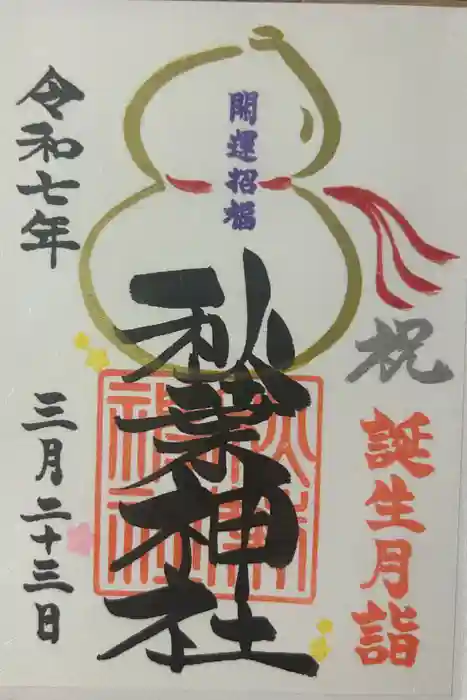 祝
誕生月詣
開運招福
秋葉神社
秋葉神社
令和七年
三月二十三日